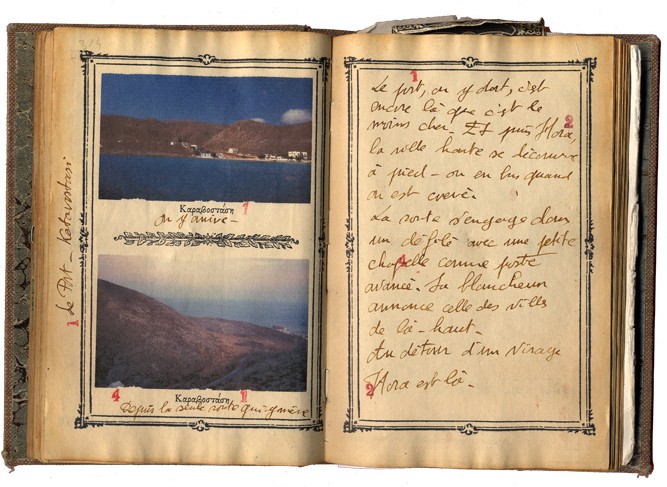 Le Port – Katavostasi
1
Καραβοστάση 1
on y arrive –
4 Καραβοστάση 1
Depuis la seule route qui y mène
1
Le port, on y dort, c'est
encore là que c'est le
moins cher – Et puis Hora, 2
la ville haute se découvre
à pied – ou en bus quand
on est crevé.
La route s'engage dans
un défilé avec une petite
chapelle comme poste
4
avancé. Sa blancheur
annonce celle des villes
de là-haut –
Au détour d'un virage
2 Hora est là –